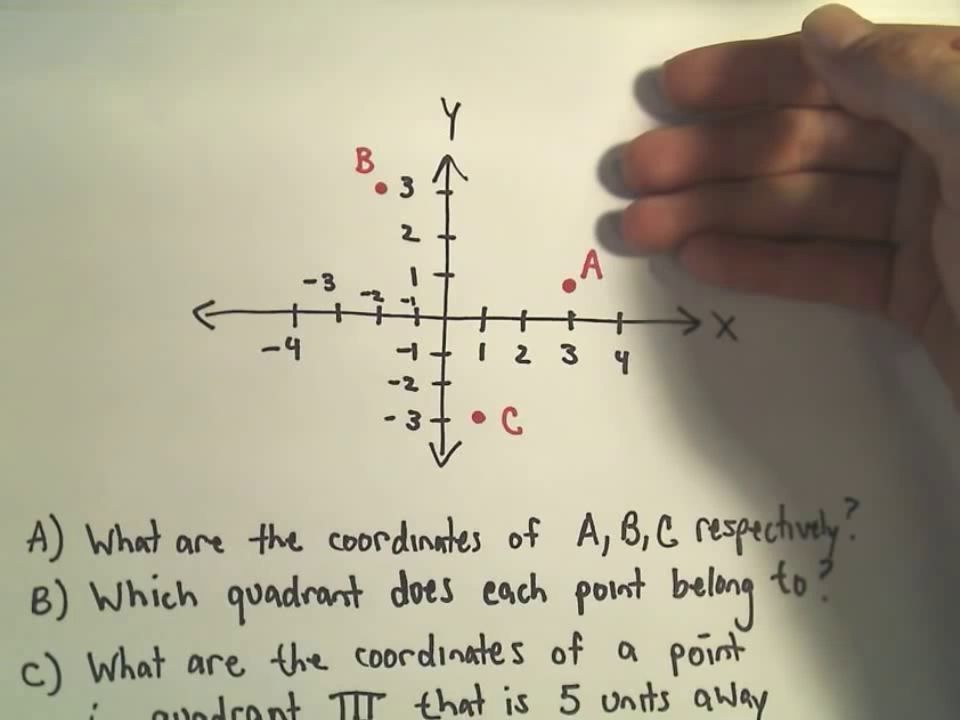 Y
B
3
2
A
1
-3
-2
-1
X
-4
-1
1
2
3
4
-2
-3
C
A) What are the coordinates of A, B, C respectively?
B) Which quadrant does each point belong to?
C) What are the coordinates of a point
quadrant III that is 5 units away